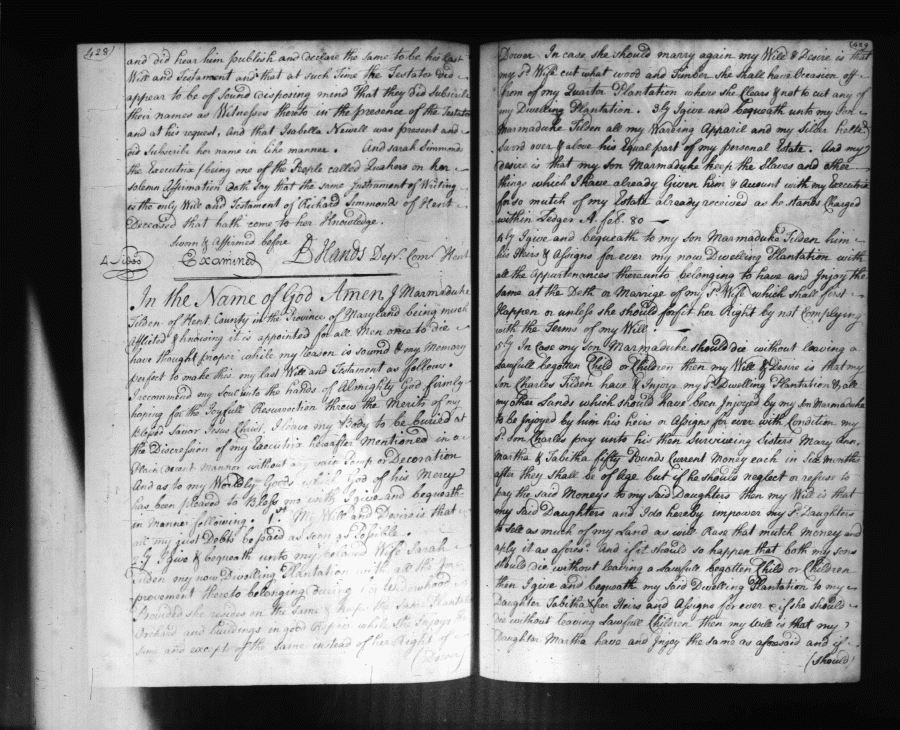 428
and did hear him publish and declare the same to be his last
Will and Testament and that at such Time the Testator did
appear to be of Sound disposing mind That they did Subscribe
their names as Witnesses thereto in the presence of the Testator
and at his request, And that Isabella Newell was present and
did Subscribe her name in like manner. And Sarah Simmonds
the Executrix / being one of the People called Quakers on her
Solemn Affirmation doth Say that the same Instrument of Writing
is the only Will and Testament of Richard Simmonds of Kent
Deceased that hath come to her Knowledge.
Sworn & Affirmed before
Examined Hands Depy. Comy. Kent
In the Name of God Amen I Marmaduke
Tilden of Kent County in the Province of Maryland being much
Afflicted & knowing it is appointed for all Men once to die
have thought proper while my Reason is sound & my Memory
perfect to make this my last Will and Testament as follows.
I recommend my Soul unto the hands of Almighty God firmly
hoping for the Joyfull Resurrection threw the Merits of my
blessed Savor Jesus Christ. I leave my Body to be buried at
the Discression of my Executrix hereafter Mentioned in a
Plain decent manner without any vain Pomp or Decoration
And as to my Worldly Goods which God of his Mercy
has been pleased to Bless me with I give and bequeath
in manner following. 1st. My Will and Desire is that
all my just Debts be paid as soon as Possible.
2ly I give & bequeath unto my beloved Wife Sarah
Tilden my now Dwelling Plantation with all the Im
provement thereto belonging during her Widowhood
Provided she resides on the Same & keep the Same Plantation
Orchard and buildings in good Repair while she Enjoys the
Same and except of the same instead of her Right of
(Dower)
429
Dower. In case she should marry again my Will & Desire is that
my Sd. Wife cut what wood and Timber she shall have Occasion off
from of my Quarter Plantation where she Clears & not to cut any of
my Dwelling Plantation. 3ly I give and bequeath unto my Son
Marmaduke Tilden all my Waring Apparil and my Silver hilted
Sword over & above his Equal part of my personal Estate. And my
desire is that my Son Marmaduke keep the Slaves and other
things which I have already Given him & Account with my Executrix
for so mutch of my Estate already received as he stands Charged
within Ledger A. fol. 80
4ly I give and bequeath to my Son Marmaduke Tilden him
his Heirs & Assigns for ever my now Dwelling Plantation with
all the Appurtenances thereunto belonging to have and Injoy the
same at the Deth or Marrige of my Sd. Wife which shall first
Happen or unless she should forfit her Right by not Complying
with the Terms of my Will.
5ly In case my Son Marmaduke should die without leaving a
Lawfull begotten Child or Children then my Will & Desire is that my
Son Charles Tilden have & Injoy my Sd. Dwelling Plantation & all
my other Lands which should have been Injoyed by my Son Marmaduke
to be Injoyed by him his heirs or Assigns for ever with Condition my
Sd. Son Charles pay unto his then Surviveing Sisters Mary Ann,
Martha & Tabitha fifty Pounds Current Money each in Six months
after they shall be of Age but if he should neglect or refuse to
pay the said Moneys to my Said Daughters then my Will is that
my Said Daughters and I do hereby impower my Sd. Daughters
to Sell as much of my Land as will Rase that mutch Money and
aply it as afores. And if it should so happen that both my Sons
should die without leaving a Lawfull begotten Child or Children
then I give and bequeath my Said Dwelling Plantation to my
Daughter Tabitha her Heirs and Assigns for ever & if she should
die without leaving Lawfull Children then my Will is that my
Daughter Martha have and Injoy the same as aforesaid and if
(should)